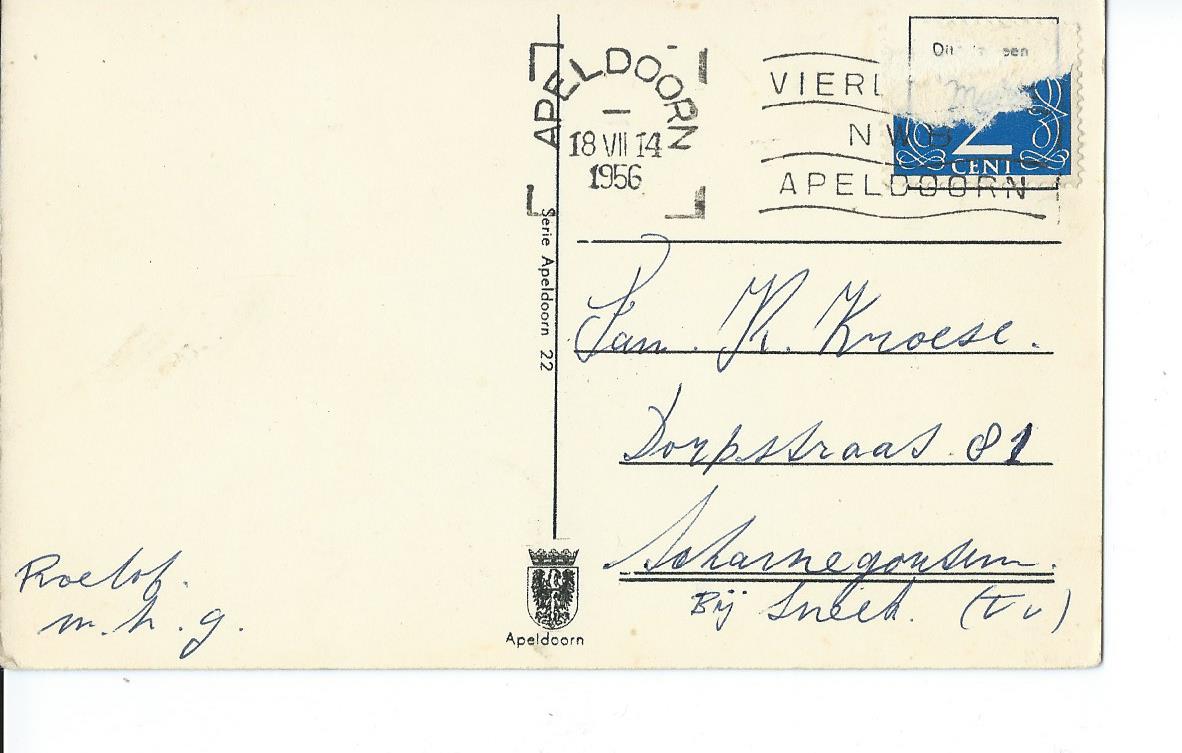 APELDOORN
18 VII 14
1956
VIERL
N W B
APELDOORN
een
2
CENT
Serie Apeldoorn 22
Fam. K. Kroese.
Dorpstraat 81
Scharnegoutum.
Bij Sneek.
Roelof.
m. h. g.
Apeldoorn